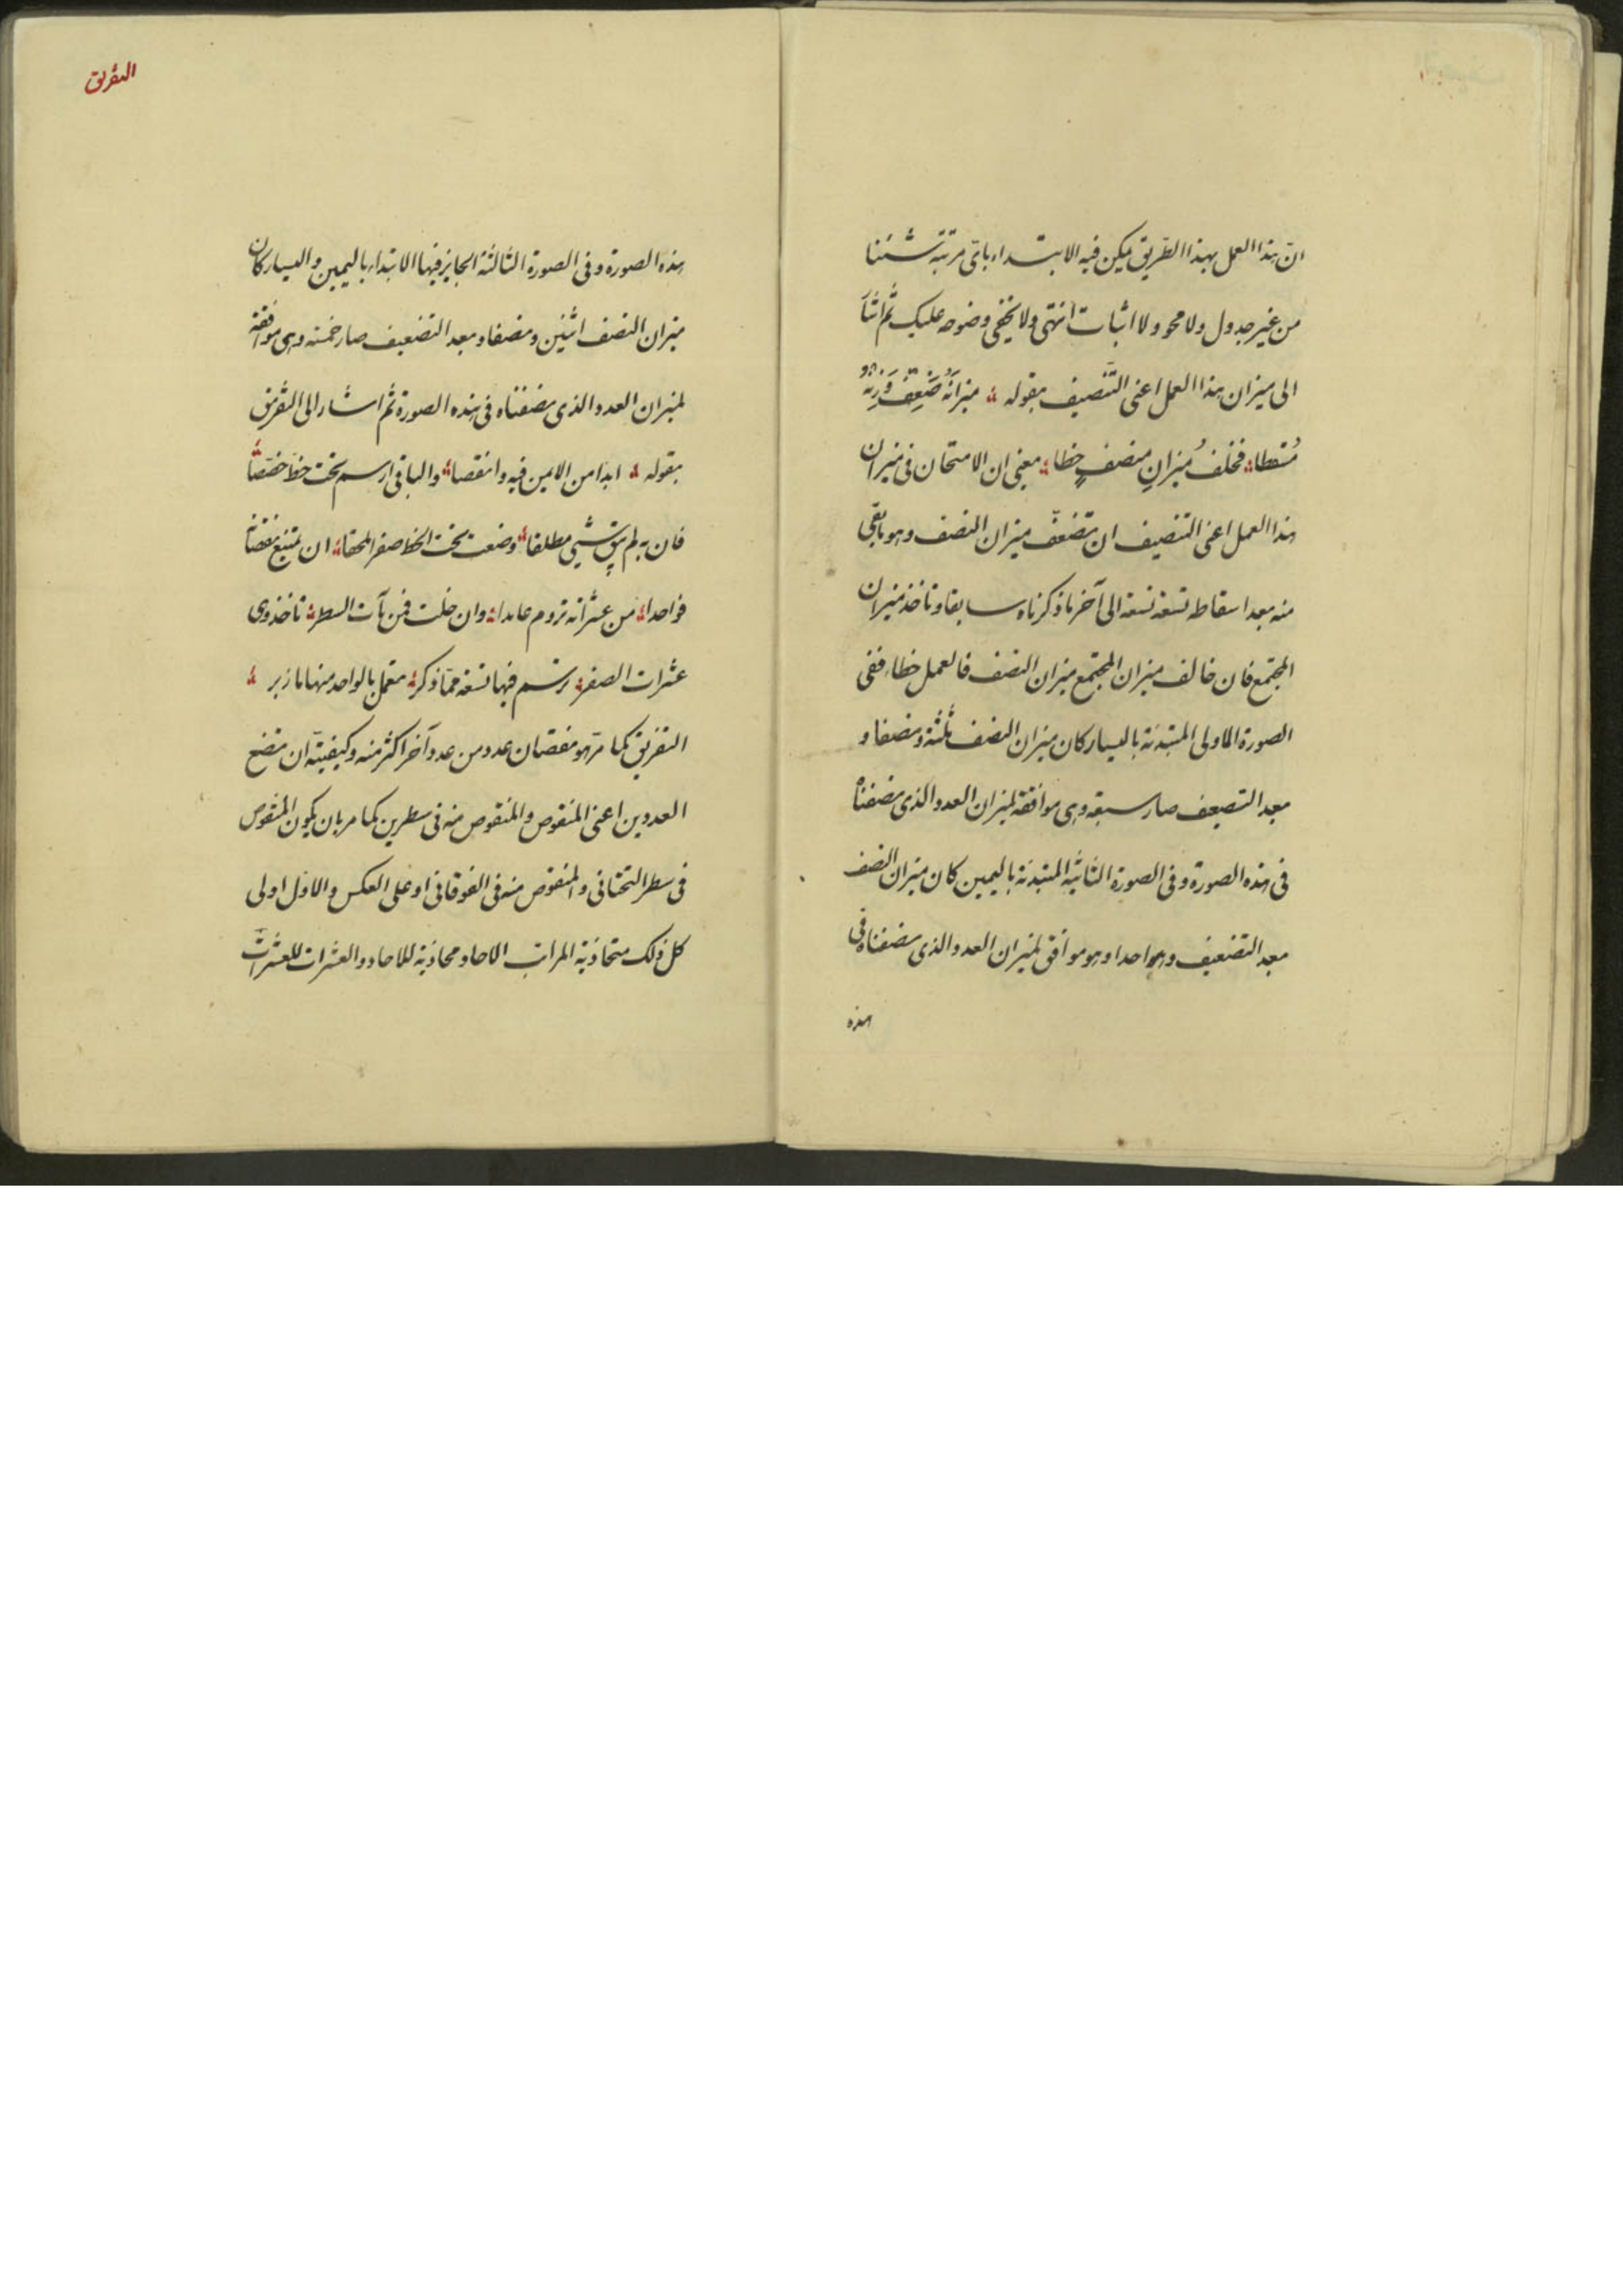 ان هذا العمل بهذا الطريق يمكن فيه الابتداء باى مرتبة شئنا
من غير جدول ولا محو ولا اثبات انتهى ولا يخفى وضوحه عليك ثم اشا
الى ميزان هذا العمل اعنى التنصيف بقوله ميزانه ضعف وزنه
مسقطا فخلف ميزان منصف خطا يعنى ان الامتحان فى ميزان
هذا العمل اعنى التنصيف ان تضعف ميزان النصف وهو ما بقى
منه بعد اسقاطه تسعة تسعة الى آخر ما ذكرناه سابقا وتاخذ ميزان
المجتمع فان خالف ميزان المجتمع ميزان النصف فالعمل خطاء ففى
الصورة الاولى المبتدئة باليسار كان ميزان النصف ثلثة ونصفا و
بعد التضعيف صار سبعة وهى موافقة لميزان العدد الذى نصفناه
فى هذه الصورة وفى الصورة الثانية المبتدئة باليمين كان ميزان النصف
بعد التضعيف وهو واحدا وهو موافق لميزان العدد الذى نصفناه فى
هذه
التفريق
هذه الصورة وفى الصورة الثالثة الجايز فيها الابتداء باليمين واليسار كان
ميزان النصف اثنين ونصفا وبعد التضعيف صار خمسة وهى موافقة
لميزان العدد الذى نصفناه فى هذه الصورة ثم اشار الى التفريق
بقوله ابدا من الايمن فيه وانقصا والباقى ارسم تحت خط خصصا
فان به لم يبق شيئ مطلقا وضعت تحت الخط صفرا ملحقا ان يمتنع نقصانه
فواحدا من عشراته تروم عامدا وان خلت فمن مآت السطر تاخذ وى
عشرات الصفر ترتسم فيها تسعة مما ذكر تعمل بالواحد منها ما زبر
التفريق كما مر هو نقصان عدد من عدد آخر اكثر منه وكيفيته ان تضع
العددين اعنى المنقوص والمنقوص منه فى سطرين كما مر بان يكون المنقوص
فى سطر التحتانى والمنقوص منه فى الفوقانى او على العكس والاول اولى
كل ذلك متحاذية المراتب الاحاد محاذية للاحاد والعشرات للعشرات